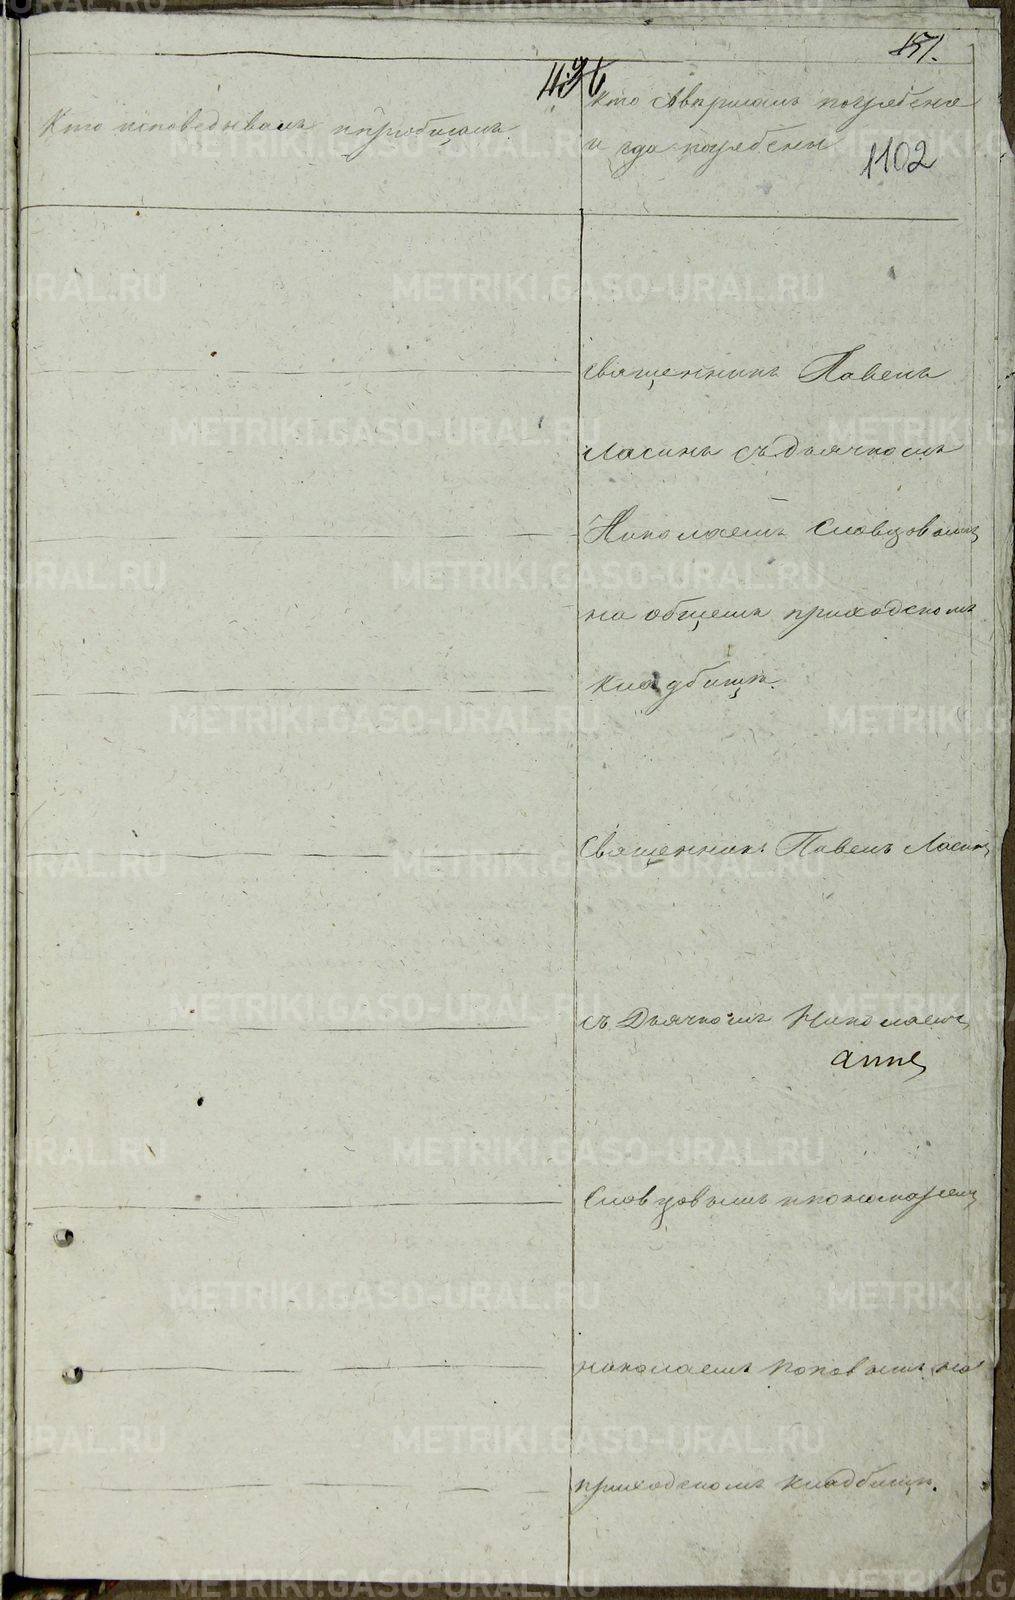 151.
496
Кто исповедывалъ и приобщалъ.
Кто Совершалъ погребение
и где погребены
1102
Священникъ Павелъ
Ласинъ съ дьячкомъ
Николаемъ Словцовымъ
на общемъ приходскомъ
кладбище.
Священникъ Павелъ Ласинъ
съ Дьячкомъ Николаемъ
Словцовымъ и пономаремъ
николаемъ Поповымъ на
приходскомъ кладбище.
METRIKI.GASO-URAL.RU